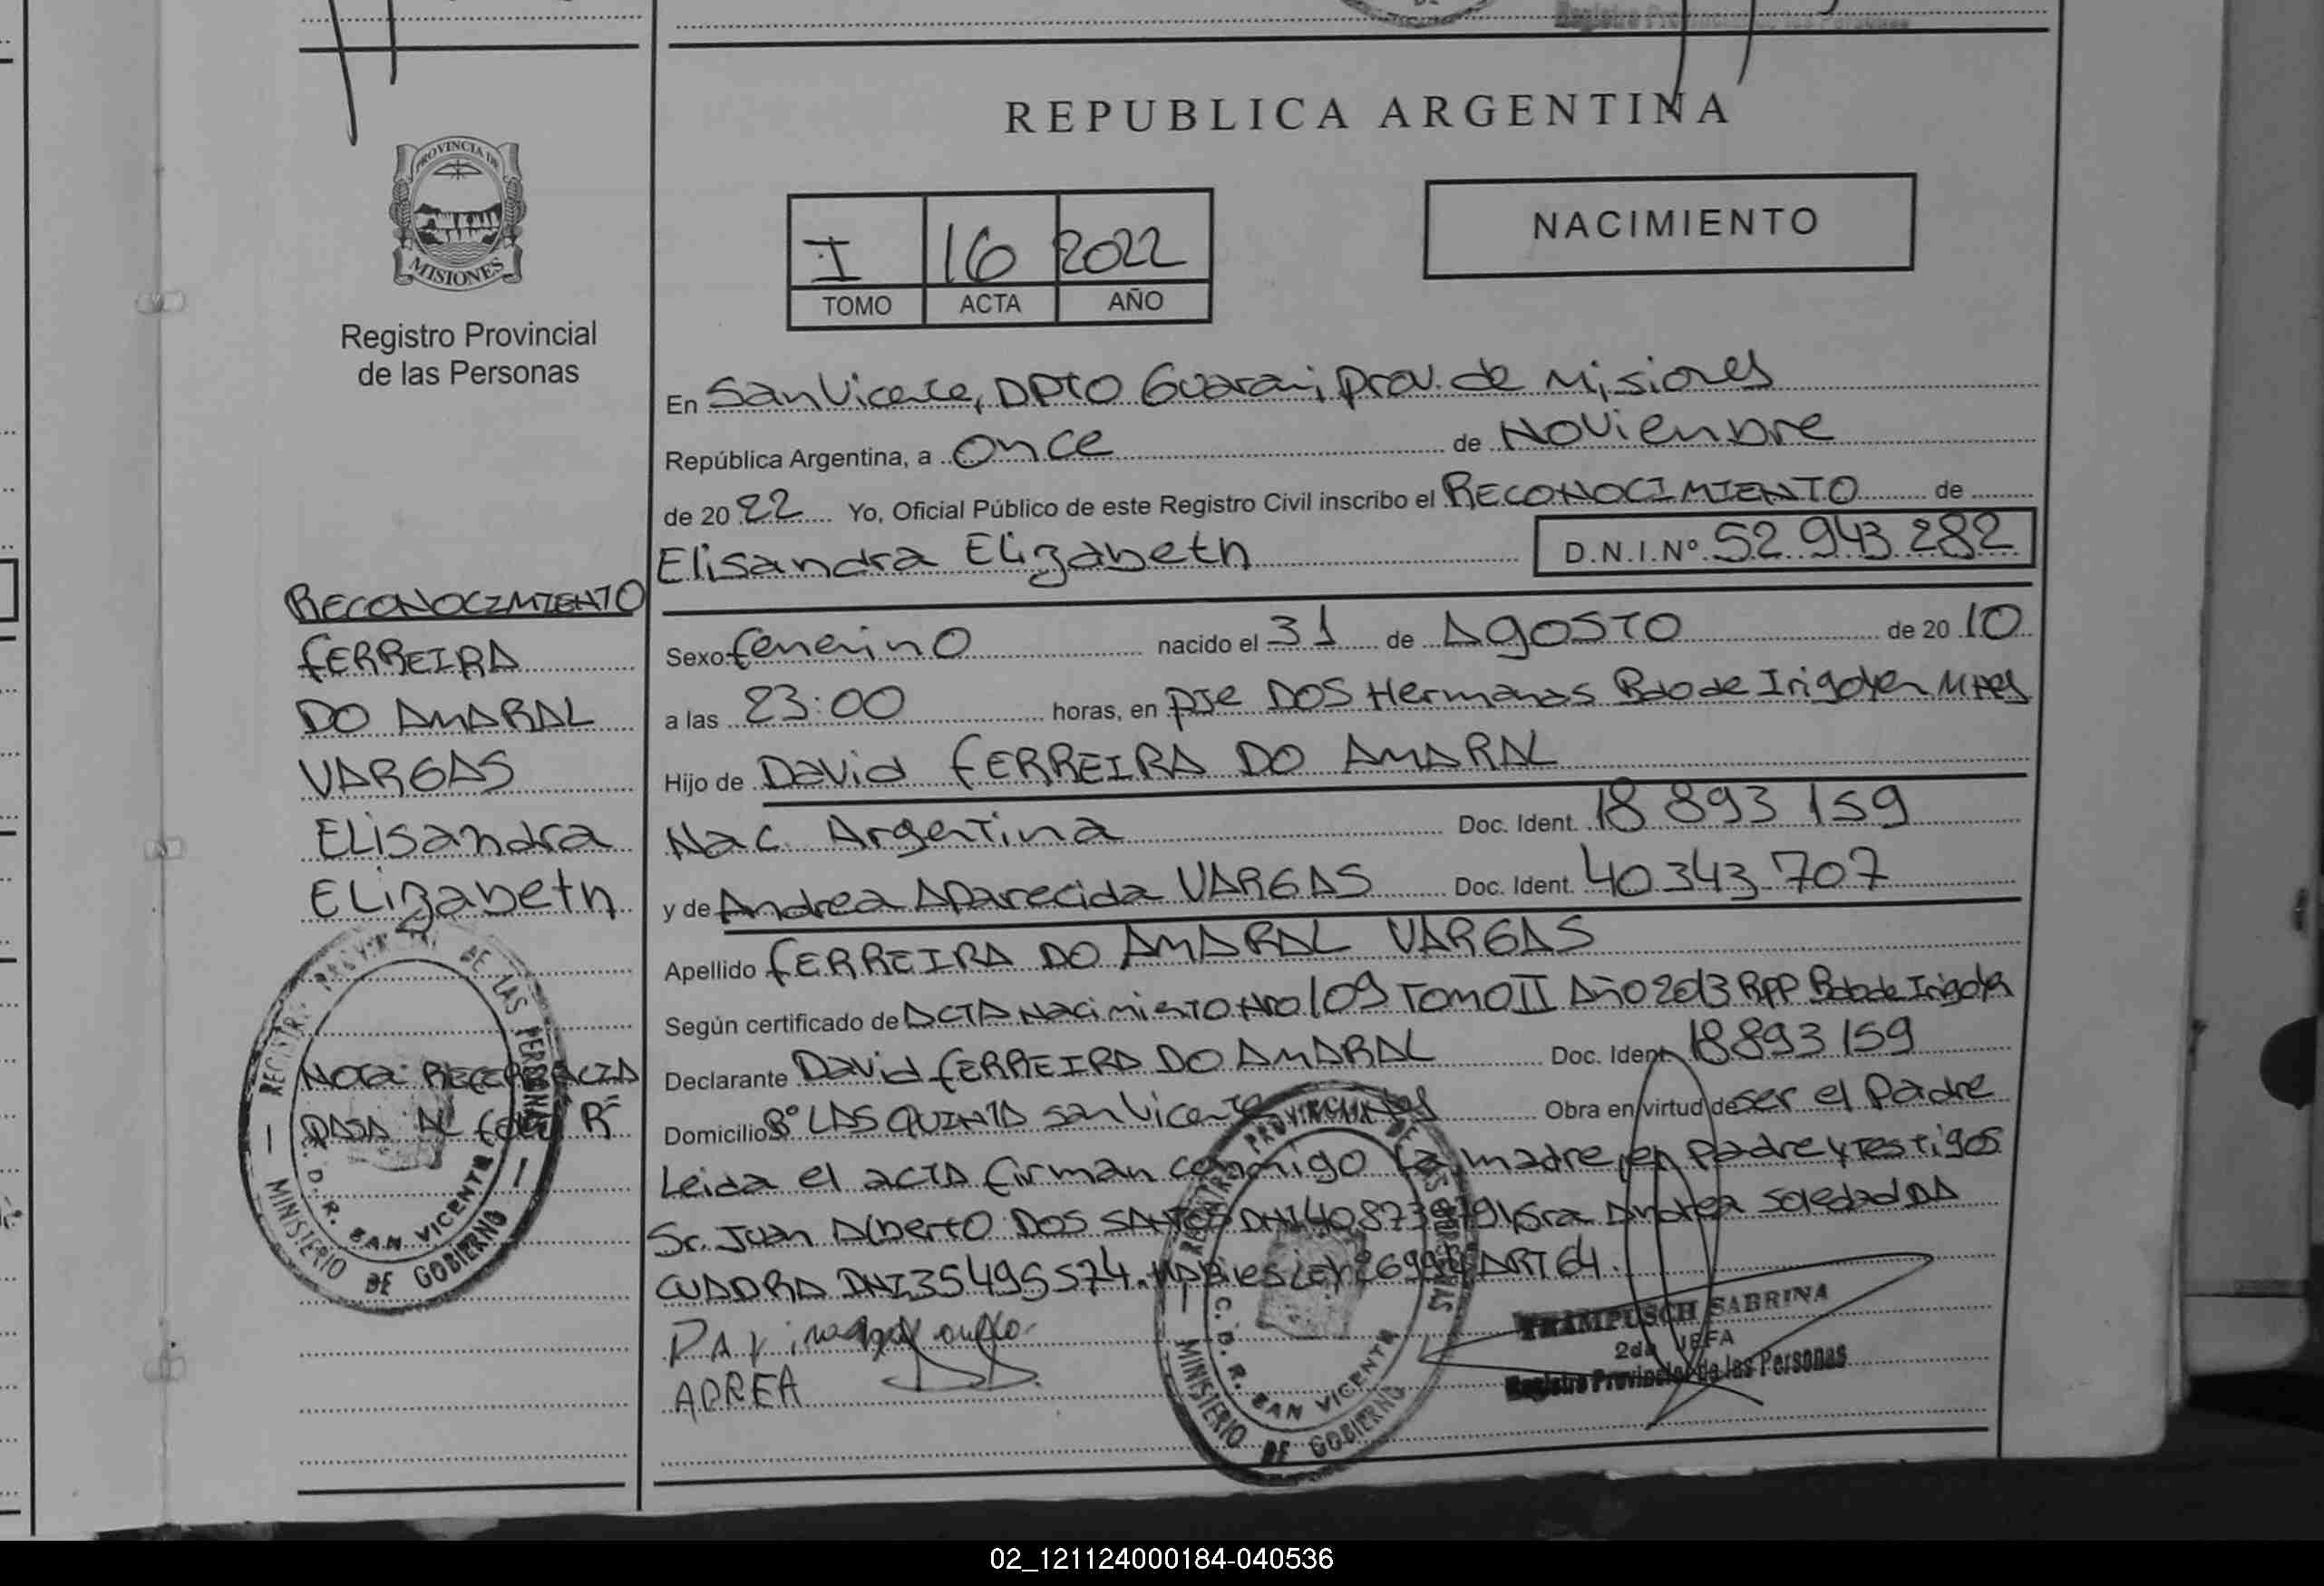 REPUBLICA ARGENTINA
PROVINCIA DE
MISIONES
Registro Provincial
de las Personas
I 16 2022
TOMO ACTA AÑO
NACIMIENTO
En San Vicente, DPTO Guarani, prov. de Misiones
República Argentina, a once de Noviembre
de 2022 Yo, Oficial Público de este Registro Civil inscribo el RECONOCIMIENTO de
Elisandra Elizabeth D.N.I.Nº 52.943.282
RECONOCIMIENTO
FERREIRA
DO AMARAL
VARGAS
Elisandra
Elizabeth
Sexo femenino nacido el 31 de AGOSTO de 2010
a las 23:00 horas, en pje DOS Hermanas Bdo de Irigoyen Mnes
Hijo de David FERREIRA DO AMARAL
Nac. Argentina Doc. Ident. 18 893 159
y de Andrea Aparecida VARGAS Doc. Ident. 40 343 707
Apellido FERREIRA DO AMARAL VARGAS
Según certificado de ACTA Nacimiento NRO 109 TOMO II Año 2013 RPP Bdo de Irigoyen
Declarante David FERREIRA DO AMARAL Doc. Ident. 18893 159
Domicilio Bº LAS QUINTA San Vicente Obra en virtud de ser el padre
Leida el acta firman conmigo la madre, el padre y testigos
Sr. Juan Alberto DOS SANTOS DNI Sra Andrea Soledad DA
CUADRA DNI 35495574. ART 64.
NOTA REFERENCIA
PASA AL
REGISTRO PROVINCIAL DE LAS PERSONAS
D. R. SAN VICENTE
MINISTERIO DE GOBIERNO
REGISTRO PROVINCIAL DE LAS PERSONAS
C. D. R. SAN VICENTE
MINISTERIO DE GOBIERNO
SABRINA
2da JEFA
Registro Provincial de las Personas
ADREA
02_121124000184-040536